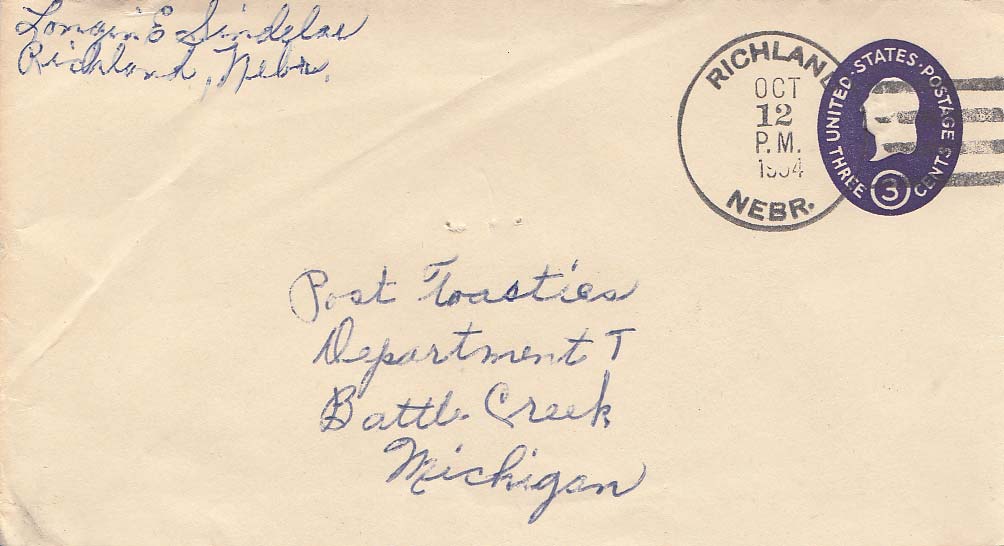 Longin E Sindelar
Richland, Nebr.
RICHLAND
OCT
12
P.M.
NEBR.
UNITED · STATES · POSTAGE
THREE 3 CENTS
Post Toasties
Department T
Battle Creek
Michigan